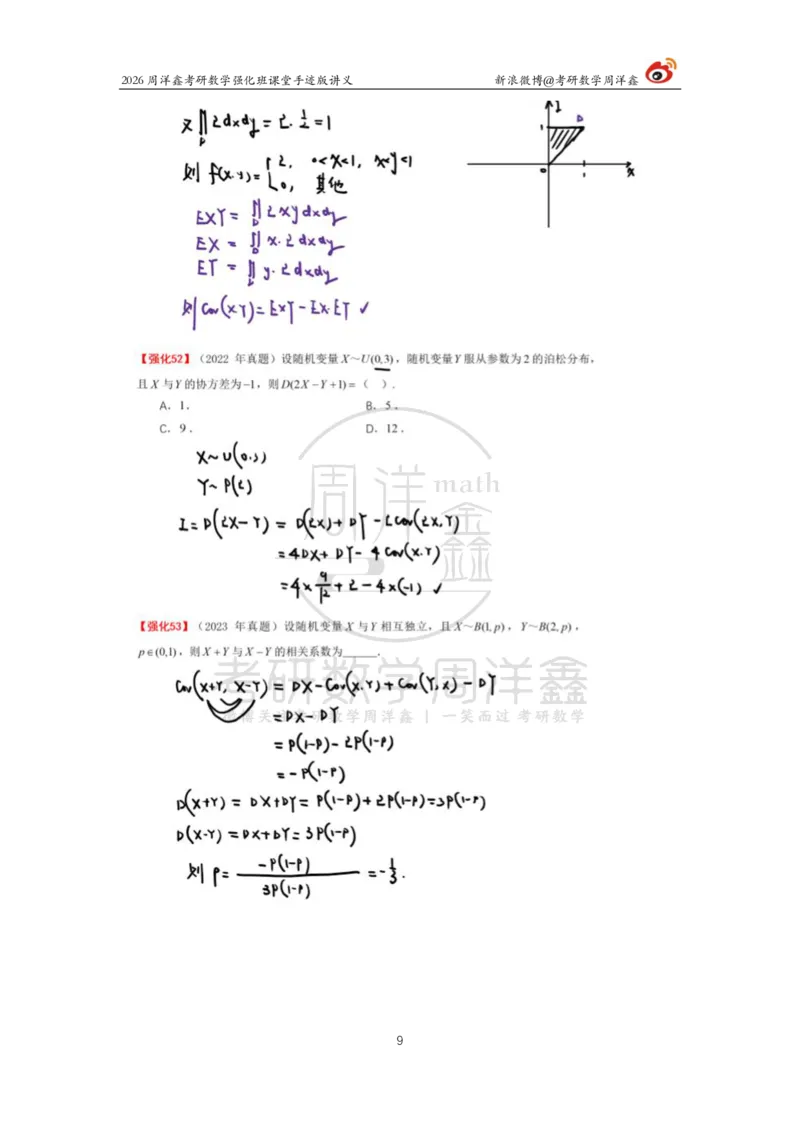 2026 周洋鑫考研数学强化班课堂手迹版讲义 新浪微博@考研数学周洋鑫
又∬_D 2dxdy = 2·1/2 = 1
则 f(x,y) = { 2, 0<x<1, x<y<1
0, 其他
1 D
0 1 x
EXY = ∬_D 2xydxdy
EX = ∬_D x·2dxdy
EY = ∬_D y·2dxdy
则 Cov(X,Y) = EXY - EX·EY ✓
【强化52】（2022 年真题）设随机变量 X～U(0,3)，随机变量Y 服从参数为2的泊松分布，
且 X 与Y 的协方差为−1，则D(2X−Y+1)=（ ）.
A．1． B．5．
C．9． D．12．
X~U(0,3)
Y~P(2)
I = D(2X-Y) = D(2X) + DY - 2Cov(2X,Y)
= 4DX + DY - 4Cov(X,Y)
= 4×9/12 + 2 - 4×(-1) ✓
周洋 math 鑫
【强化53】（2023 年真题）设随机变量 X 与Y 相互独立，且 X～B(1,p)，Y～B(2,p)，
p∈(0,1)，则 X+Y 与 X−Y 的相关系数为______．
考研数学周洋鑫
Cov(X+Y, X-Y) = DX - Cov(X,Y) + Cov(Y,X) - DY
考研数学周洋鑫 | 一笑而过 考研数学
= DX - DY
= P(1-P) - 2P(1-P)
= -P(1-P)
D(X+Y) = DX+DY = P(1-P)+2P(1-P)=3P(1-P)
D(X-Y) = DX+DY = 3P(1-P)
则 ρ = -P(1-P)/3P(1-P) = -1/3.
9